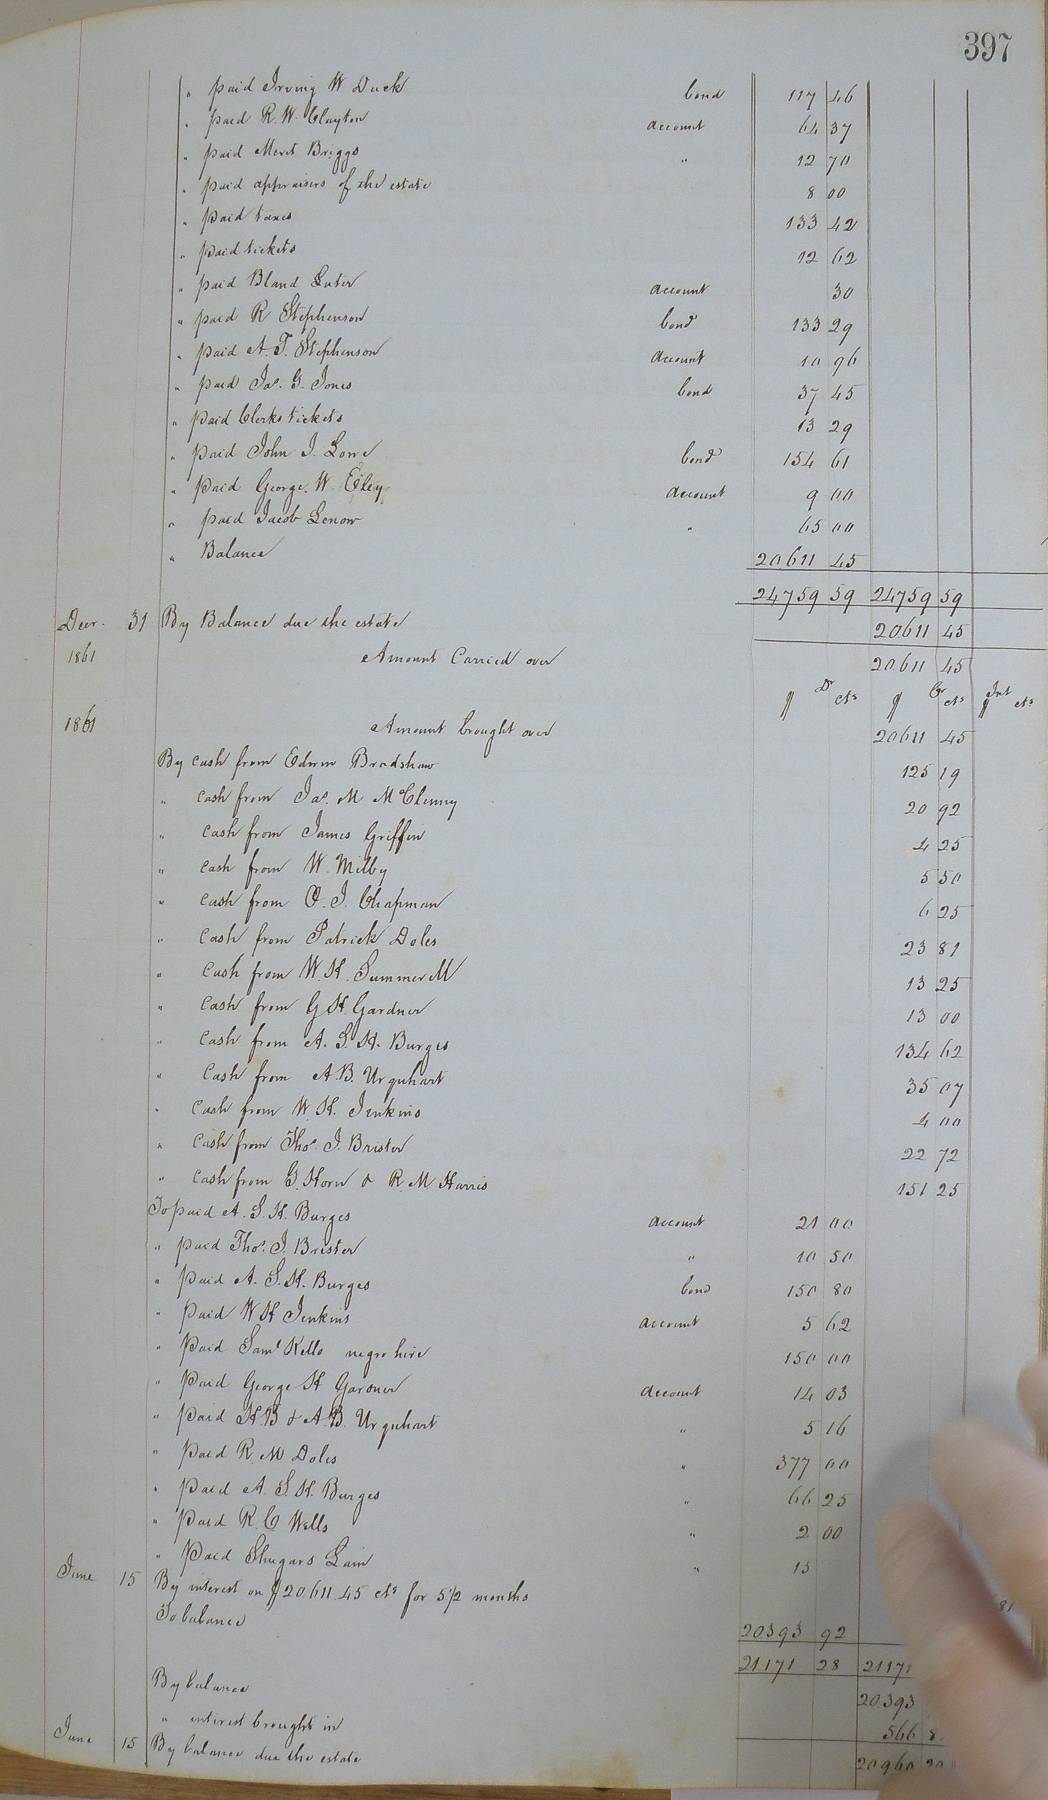 397
" paid Irving W Duck bond 117 46
" paid R. W. Clayton account 64 37
" paid Merit Briggs " 12 70
" paid appraisers of the estate 8 00
" paid taxes 133 42
" paid tickets 12 62
" paid Bland Luter account 30
" paid R Stephenson bond 133 29
" paid A. T. Stephenson account 10 96
" paid Jas. G. Jones bond 37 45
" paid Clerks tickets 13 29
" paid John J. Lowe bond 154 61
" paid George. W. Eley account 9 00
" paid Jacob Lenow " 65 00
" Balance 20611 45
24759 59 24759 59
Decr. 31 By Balance due the estate 20611 45
1861 Amount Carried over 20611 45
$ Dr cts $ Cr cts $ Int cts
1861 Amount brought over 20611 45
By cash from Edwin Bradshaw 125 19
" cash from Jas. M McClenny 20 92
" cash from James Griffin 4 25
" cash from W. Milby 5 50
" cash from O. J. Chapman 6 25
" cash from Patrick Doles 23 81
" cash from W. H. Summerell 13 25
" cash from G H. Gardner 13 00
" cash from A. S. H. Burges 134 62
" cash from A. B. Urquhart 35 07
" cash from W. H. Jenkins 4 00
" cash from Thos. J. Brister 22 72
" cash from G. Horn & R. M Harris 151 25
To paid A. S. H. Burges account 21 00
" paid Thos. J. Brister " 10 50
" paid A. S. H. Burges bond 150 80
" paid W H Jenkins account 5 62
" paid Saml Kello negro hire 150 00
" paid George H Gardner account 14 03
" paid H B & A. B. Urquhart " 5 16
" paid R. M Doles " 377 00
" paid A. S. H. Burges " 66 25
" paid R. C Wells " 2 00
" paid Shugars Lain " 15
June 15 By interest on $20611.45 cts for 5 1/2 months
To balance 20393 92
21171 28 21171
By balance 20393
" interest brought in 566 8
June 15 By balance due the estate 20960